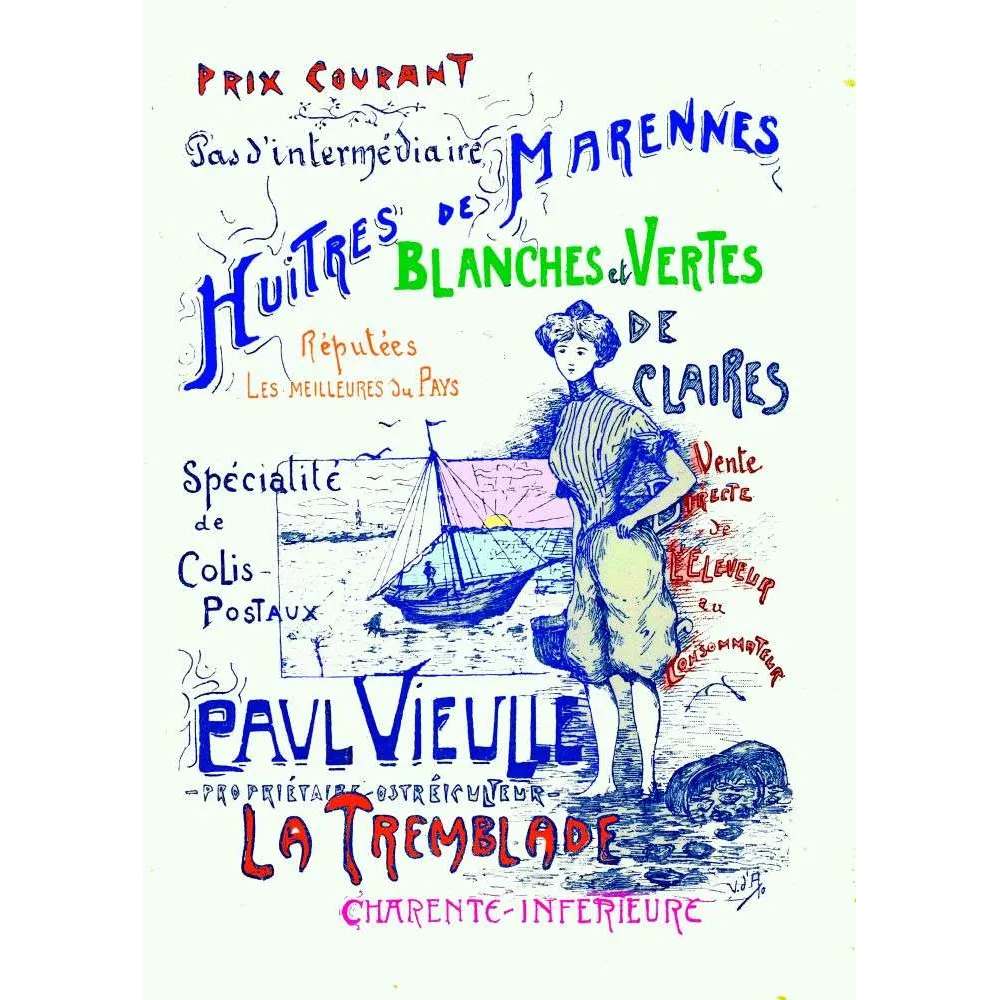 PRIX COURANT
Pas d'intermédiaire
HUITRES DE MARENNES
BLANCHES et VERTES
DE
CLAIRES
Réputées
LES MEILLEURES Du PAYS
Spécialité
de
COLIS-
POSTAUX
Vente
DIRECTE
de
L'ÉLEVEUR
au
CONSOMMATEUR
PAUL VIEULLE
-PROPRIÉTAIRE-OSTRÉICULTEUR-
LA TREMBLADE
CHARENTE-INFERIEURE